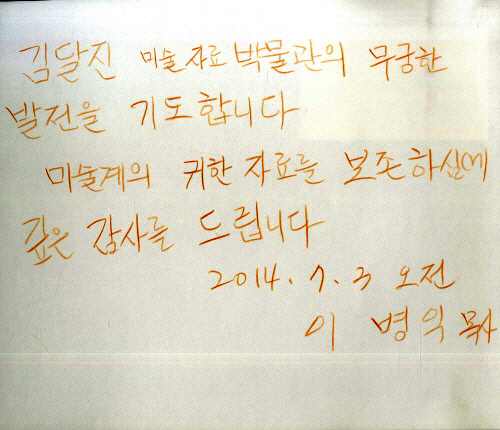 김달진 미술자료박물관의 무궁한
발전을 기도합니다
미술계의 귀한 자료를 보존하심에
깊은 감사를 드립니다
2014. 7. 3 오전
이 병익 목사